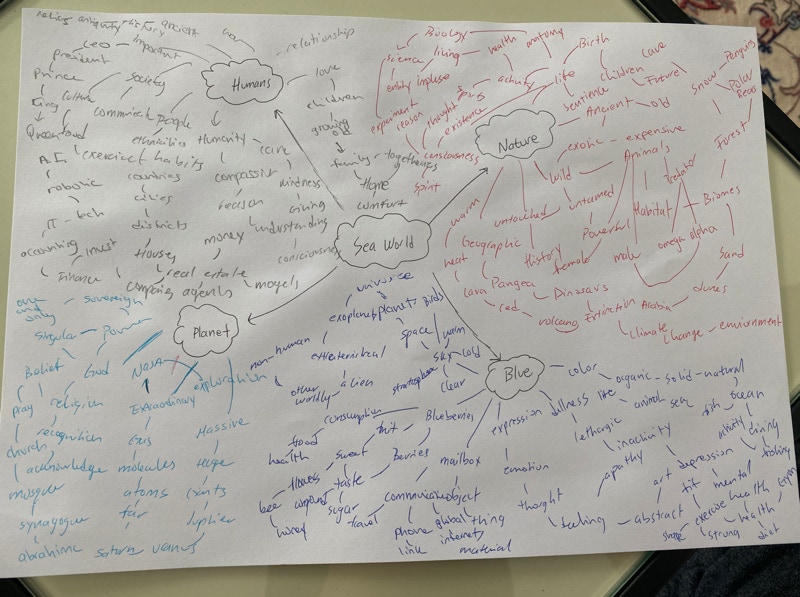 relationship
CEO important
president
Humans
love
Prince
society
children
King
culture
communical people
growing
old
ethnicities Humanity
care
family - togetherness
A.I
exercise habits
Home
robotic
countries
compassion
kindness
comfort
IT - tech
cities
reason
giving
accounting
invest
districts
money
understanding
Houses
consciousness
Finance
real estate
company agents
models
Sea World
Biology
science
living
health
anatomy
entity impulse
activity
Birth
cave
life
children
Future
Snow
Penguins
Polar
Bears
experiment
reason
thought
existence
sentience
Ancient - old
Nature
exotic - expensive
Forest
spirit
Wild
Animals
Predator
warm
untouched
untamed
Habitat
Biomes
Powerful
Geographic
history
female
male
omega alpha
heat
Sand
Lava Pangea
Dinasars
red
volcano
Extinction
Arabia
dunes
climate
change - environment
Planet
sovereign
singular
power
Belief
God
NASA
exploration
pray
religion
Extraordinary
church
recognition
Gas
Massive
acknowledge
molecules
Huge
mosque
atoms
giants
synagogue
far
Jupiter
abrahime
saturn
venus
Blue
universe
exoplanet
planets
Birds
non-human
extraterrestrial
space
warm
sky
cold
other
worldly
alien
stratosphere
clear
color
organic - solid - natural
consumption
Blueberries
expression
dullness
life
animal
sea
fish
ocean
food
fruit
lethargic
health
sweet
Berries
mailbox
inactivity
diving
flowers
taste
emotion
apathy
art
depression
fishing
bee
compound
communication
object
fit
mental
honey
sugar
travel
thought
exercise
health
phone
global
thing
feeling - abstract
strong
health
link
internet
material
diet